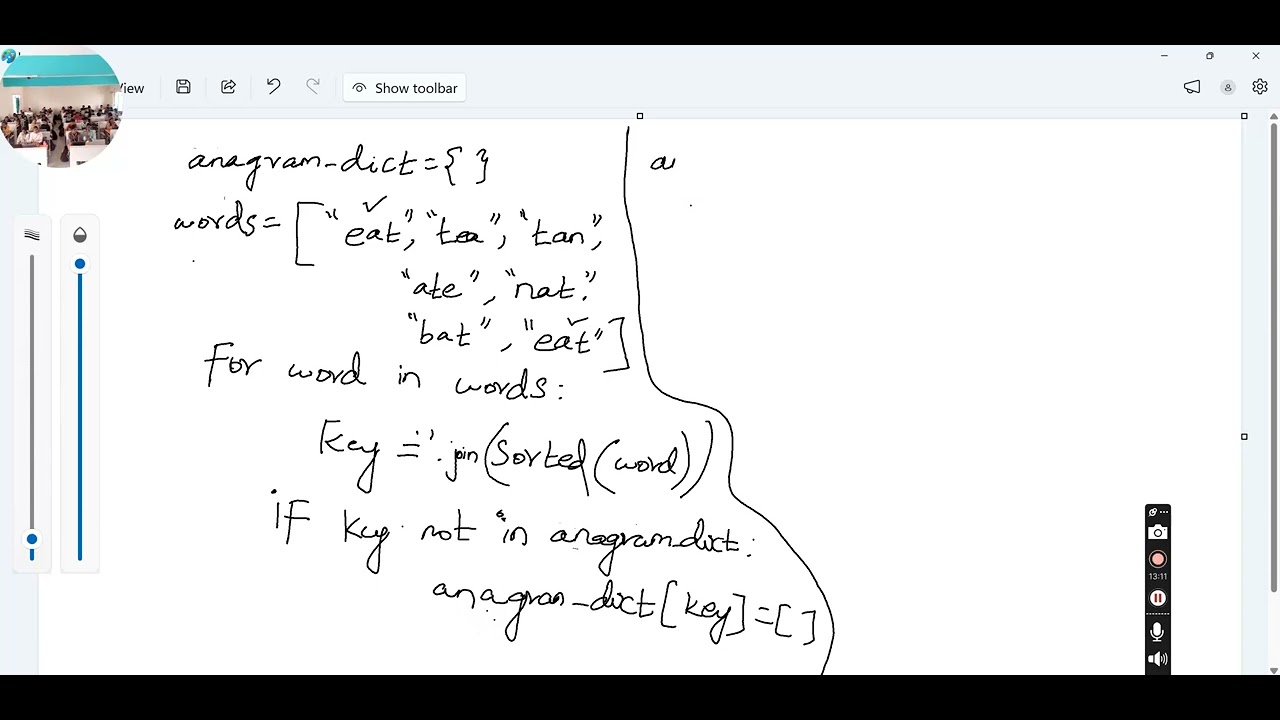 iew
Show toolbar
anagram_dict={ }
words=["eat", "tea", "tan",
"ate", "nat"
"bat", "eat"]
For word in words:
key = ''.join(sorted(word))
if key not in anagram_dict:
anagram_dict[key]=[]
a
13:11